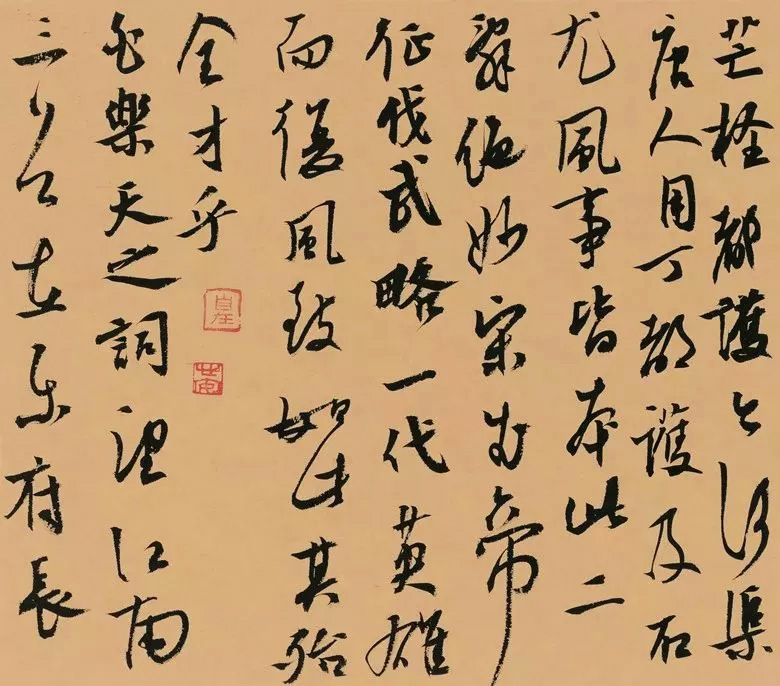 芒檉都護今何渠
唐人用丁都護及石
尤風事皆本此二
辭絕妙宋武帝
征伐武略一代英雄
而復風致如此其殆
全才乎
白樂天之詞望江南
三首在樂府長